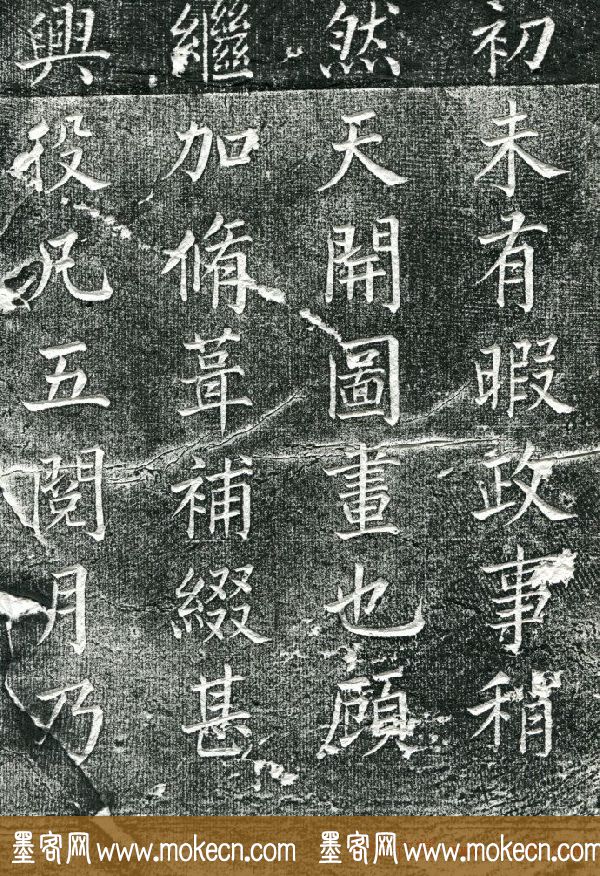 初未有暇政事稍
然天開圖畫也顧
繼加脩葺補綴甚
興役凡五閱月乃
墨客网 www.mokecn.com 墨客网 www.mokecn.com